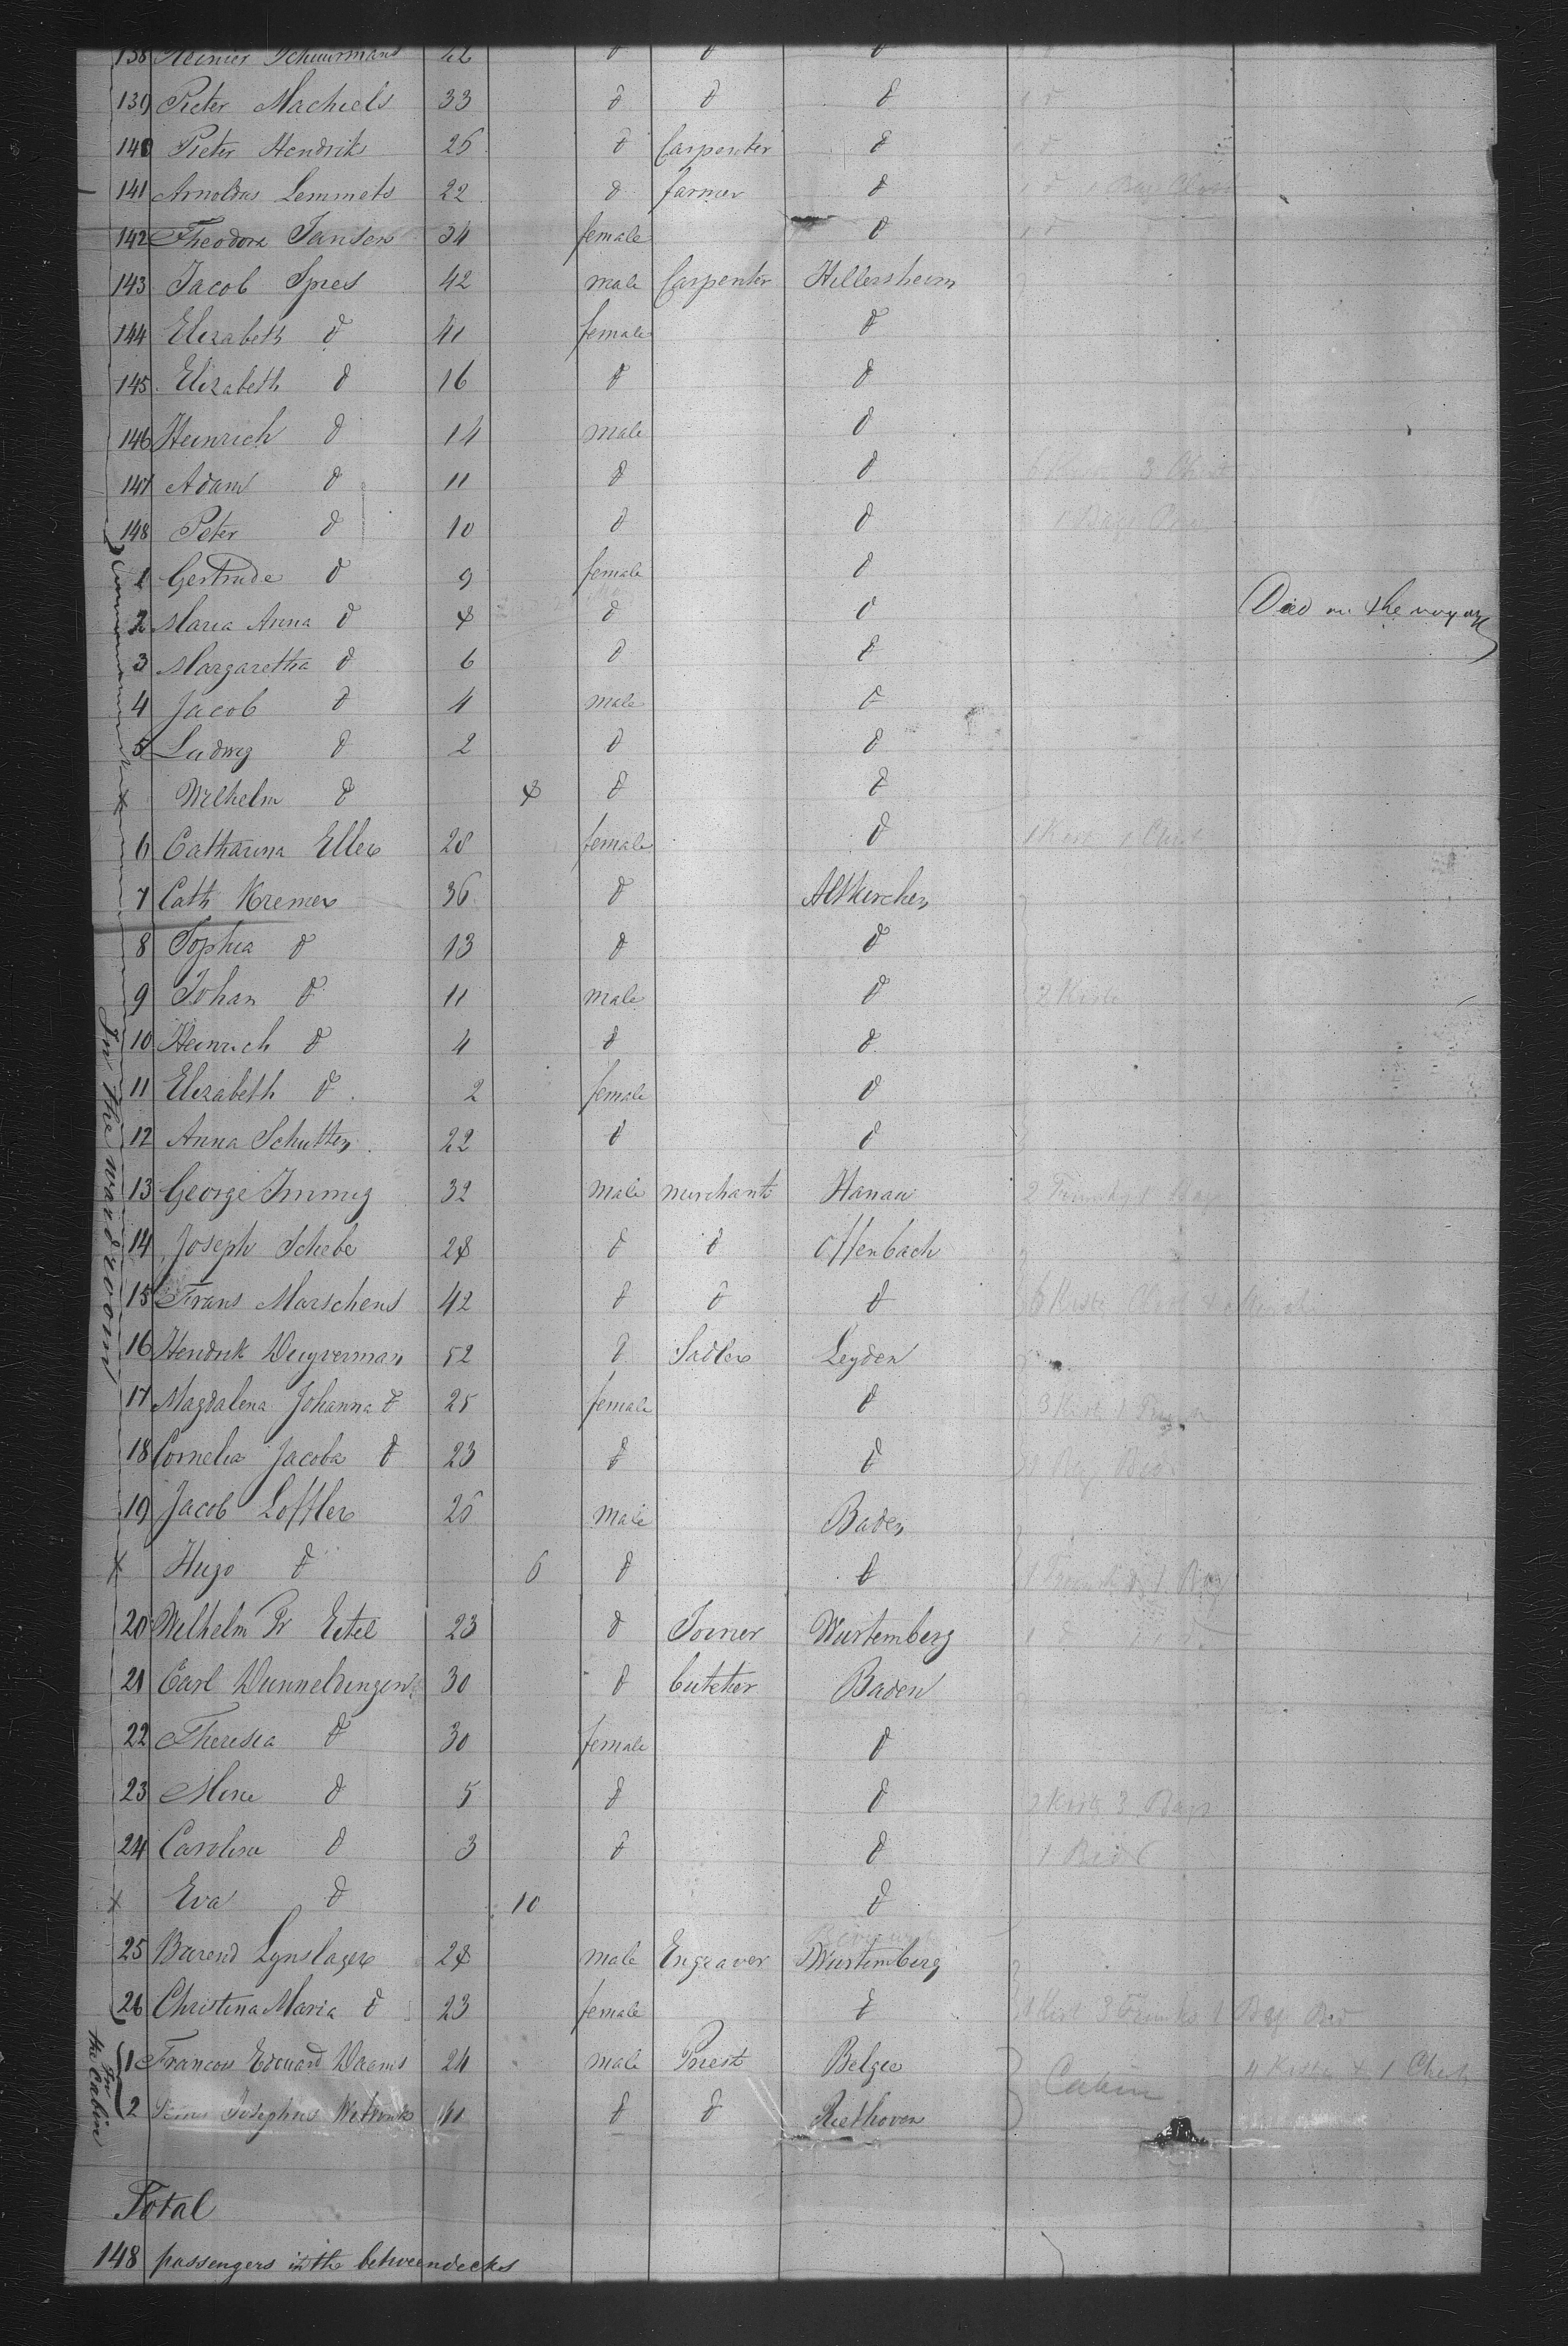 138 Reinier Schuurmans 22 d d d
139 Pieter Machiels 33 d d d 1 d
140 Pieter Hendriks 25 d Carpenter d 1 d
141 Arnoldus Lemmets 22 d farmer d 1 d 1 Bag
142 Theodora Jansen 34 female d 1 d
143 Jacob Spies 42 male Carpenter Hillersheim
144 Elizabeth d 41 female d
145 Elizabeth d 16 d d
146 Heinrich d 14 male d
147 Adam d 11 d d 3 Chest
148 Peter d 10 d d
1 Gertrude d 9 female d
2 Maria Anna d 8 d d Died on the voyage
3 Margaretha d 6 d d
4 Jacob d 4 male d
5 Ludwig d 2 d d
x Wilhelm d 8 d d
6 Catharina Eller 28 female d 1 Kist 1 Chest
7 Cath Kremer 36 d Altkirchen
8 Sophia d 13 d d
9 Johan d 11 male d 2 Kiste
10 Heinrich d 4 d d
11 Elizabeth d 2 female d
12 Anna Schutten 22 d d
13 George Immig 32 male merchant Hanau 2 Trunks 1 Bag
14 Joseph Schebe 28 d d Offenbach
15 Frans Marschens 42 d d d 6 Kiste
16 Hendrik Duyverman 52 d Sadler Leyden
17 Magdalena Johanna d 25 female d 3 Kist 1
18 Cornelia Jacoba d 23 d d Bag Bed
19 Jacob Loffler 26 male Baden
x Hugo d 6 d d 1 Trunk & 1 Bag
20 Wilhelm Fr Eitel 23 d Joiner Wurtemberg 1 d
21 Carl Dunneldingen 30 d butcher Baden
22 Theresia d 30 female d
23 Mine d 5 d d 2 Kist 3 Bags
24 Carolina d 3 d d 1 Bed
x Eva d 10 d
25 Barend Lynslager 28 male Engraver Wurtemberg
26 Christina Maria d 23 female d 1 Kist 3 Trunks 1 Bag Bed
1 Francois Edouard Daams 24 male Priest Belgie Cabin 4 Kiste & 1 Chest
2 Josephus 41 d d Riethoven
In the
In the Cabin
Total
148 passengers in the betweendecks